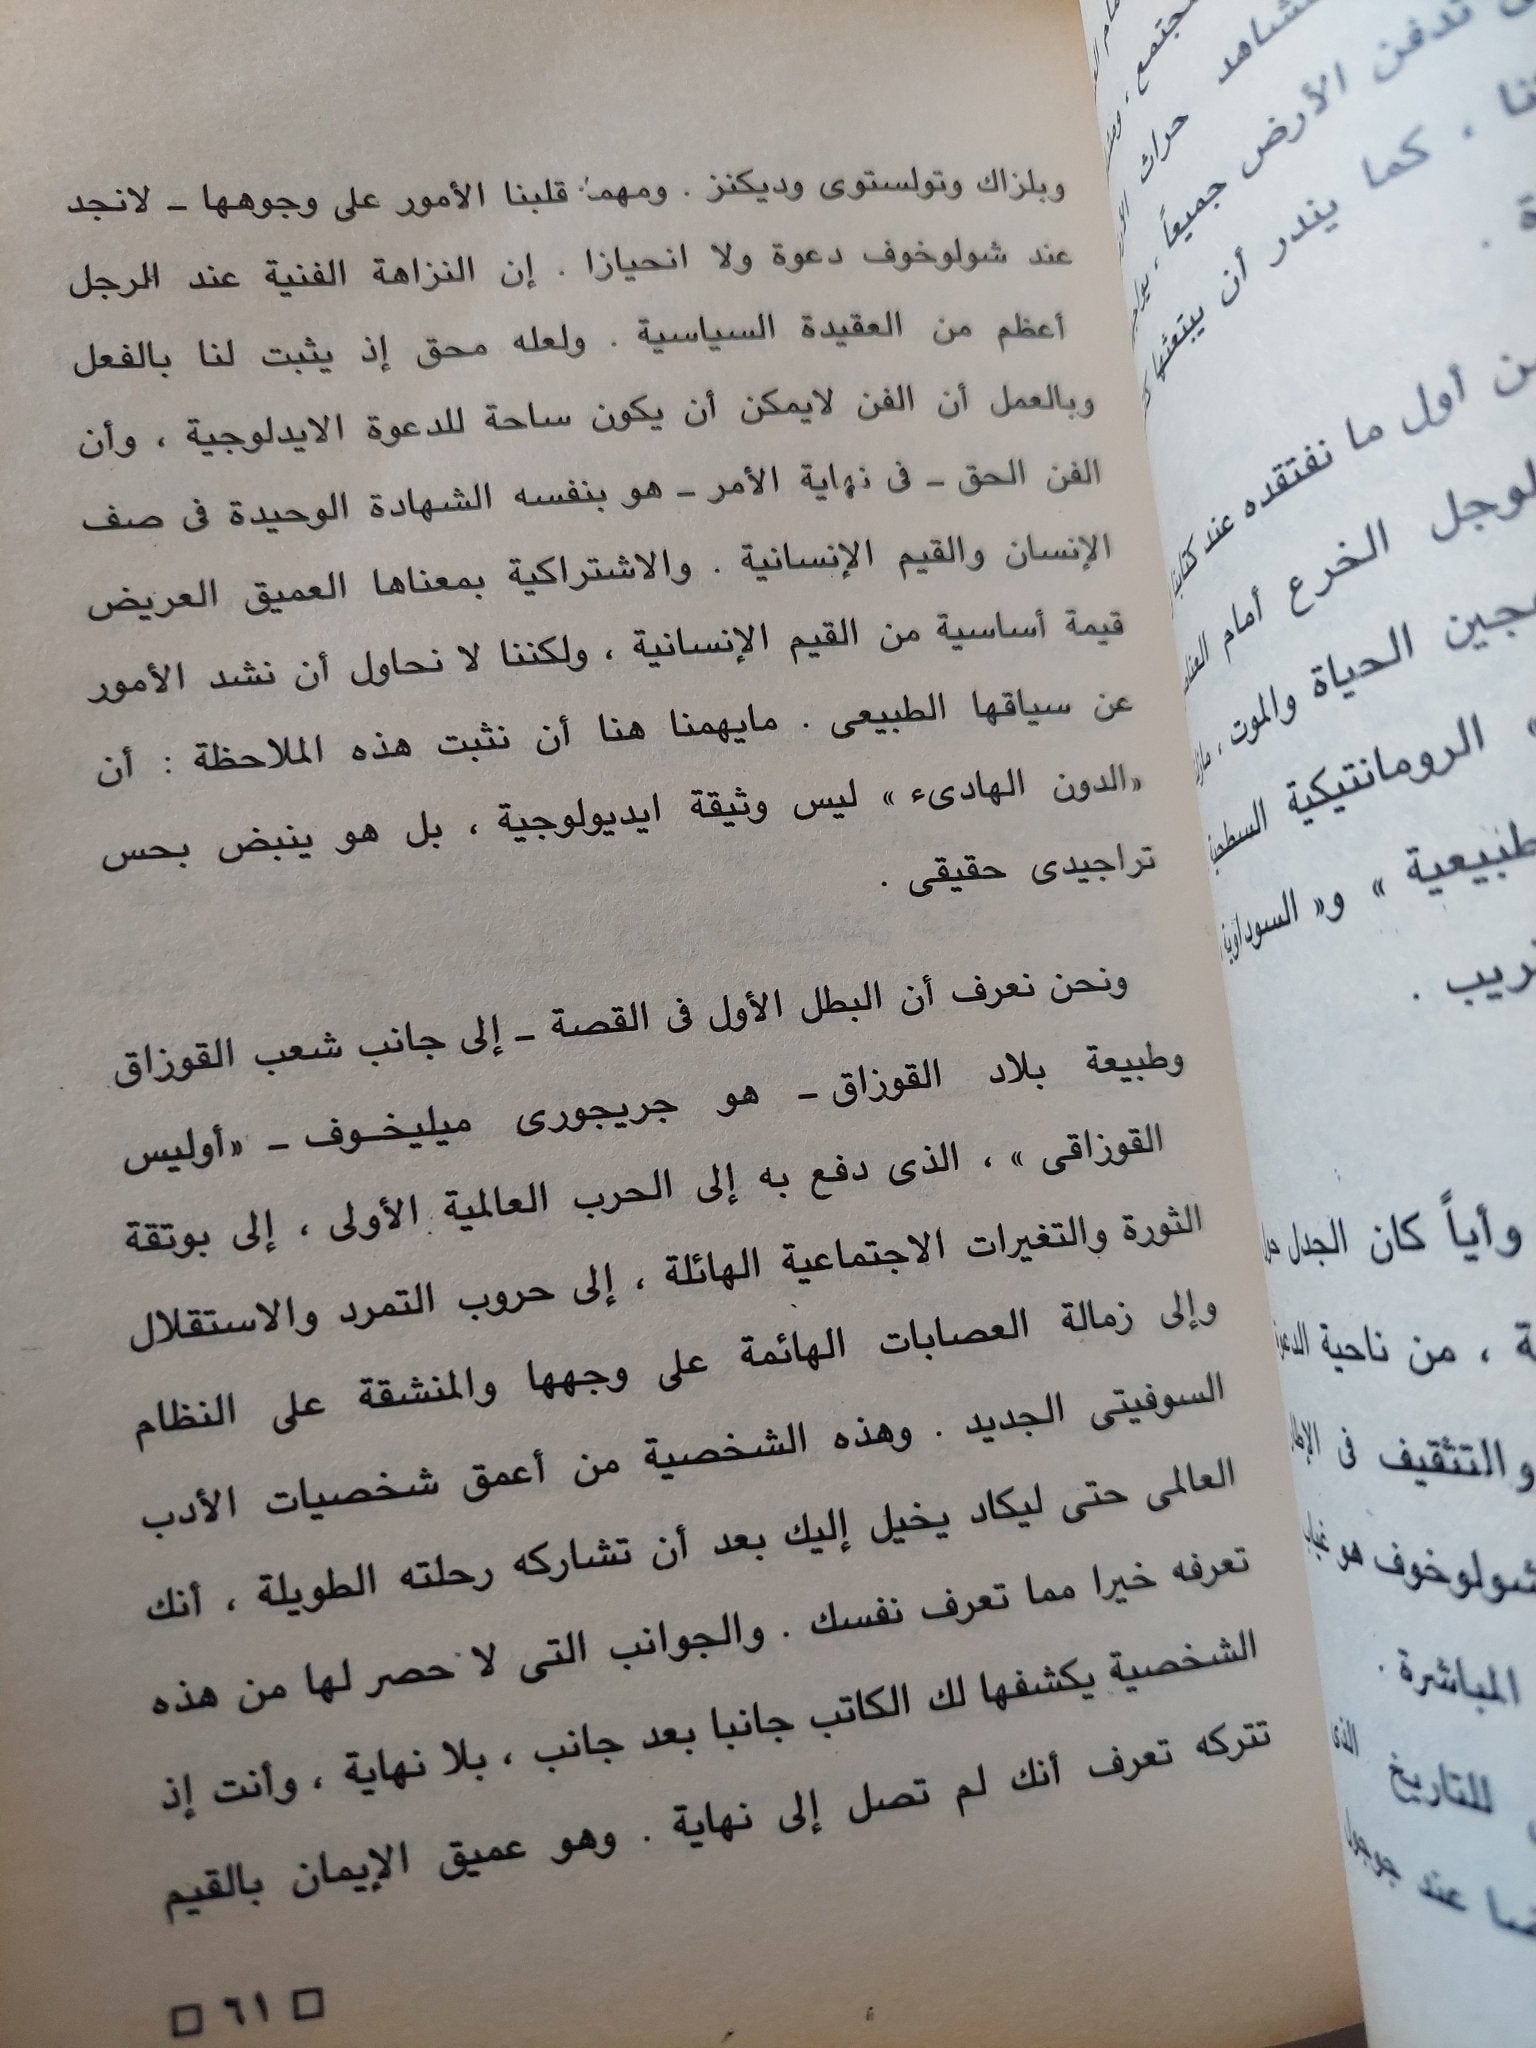 مجتمع ،
نشاهد حراث
تدفن الأرض جميعاً ،
، كما يندر أن يبتعثها
أول ما نفتقده عند
الخرع أمام
الحياة والموت ،
الرومانتيكية
» و« السوداوية
وأياً كان الجدل
، من ناحية
والتثقيف فى
شولوخوف هو غياب
المباشرة .
للتاريخ الذى
عند جوجول
وبلزاك وتولستوى وديكنز . ومهما قلبنا الأمور على وجوهها ـ لانجد
عند شولوخوف دعوة ولا انحيازا . إن النزاهة الفنية عند الرجل
أعظم من العقيدة السياسية . ولعله محق إذ يثبت لنا بالفعل
وبالعمل أن الفن لايمكن أن يكون ساحة للدعوة الايدلوجية ، وأن
الفن الحق ـ فى نهاية الأمر ـ هو بنفسه الشهادة الوحيدة فى صف
الإنسان والقيم الإنسانية . والاشتراكية بمعناها العميق العريض
قيمة أساسية من القيم الإنسانية ، ولكننا لا نحاول أن نشد الأمور
عن سياقها الطبيعى . مايهمنا هنا أن نثبت هذه الملاحظة : أن
«الدون الهادىء» ليس وثيقة ايديولوجية ، بل هو ينبض بحس
تراجيدى حقيقى .
ونحن نعرف أن البطل الأول فى القصة ـ إلى جانب شعب القوزاق
وطبيعة بلاد القوزاق ـ هو جريجورى ميليخوف ـ «أوليس
القوزاقى» ، الذى دفع به إلى الحرب العالمية الأولى ، إلى بوتقة
الثورة والتغيرات الاجتماعية الهائلة ، إلى حروب التمرد والاستقلال
وإلى زمالة العصابات الهائمة على وجهها والمنشقة على النظام
السوفيتى الجديد . وهذه الشخصية من أعمق شخصيات الأدب
العالمى حتى ليكاد يخيل إليك بعد أن تشاركه رحلته الطويلة ، أنك
تعرفه خيرا مما تعرف نفسك . والجوانب التى لا حصر لها من هذه
الشخصية يكشفها لك الكاتب جانبا بعد جانب ، بلا نهاية ، وأنت إذ
تتركه تعرف أنك لم تصل إلى نهاية . وهو عميق الإيمان بالقيم
□ ٦١ □